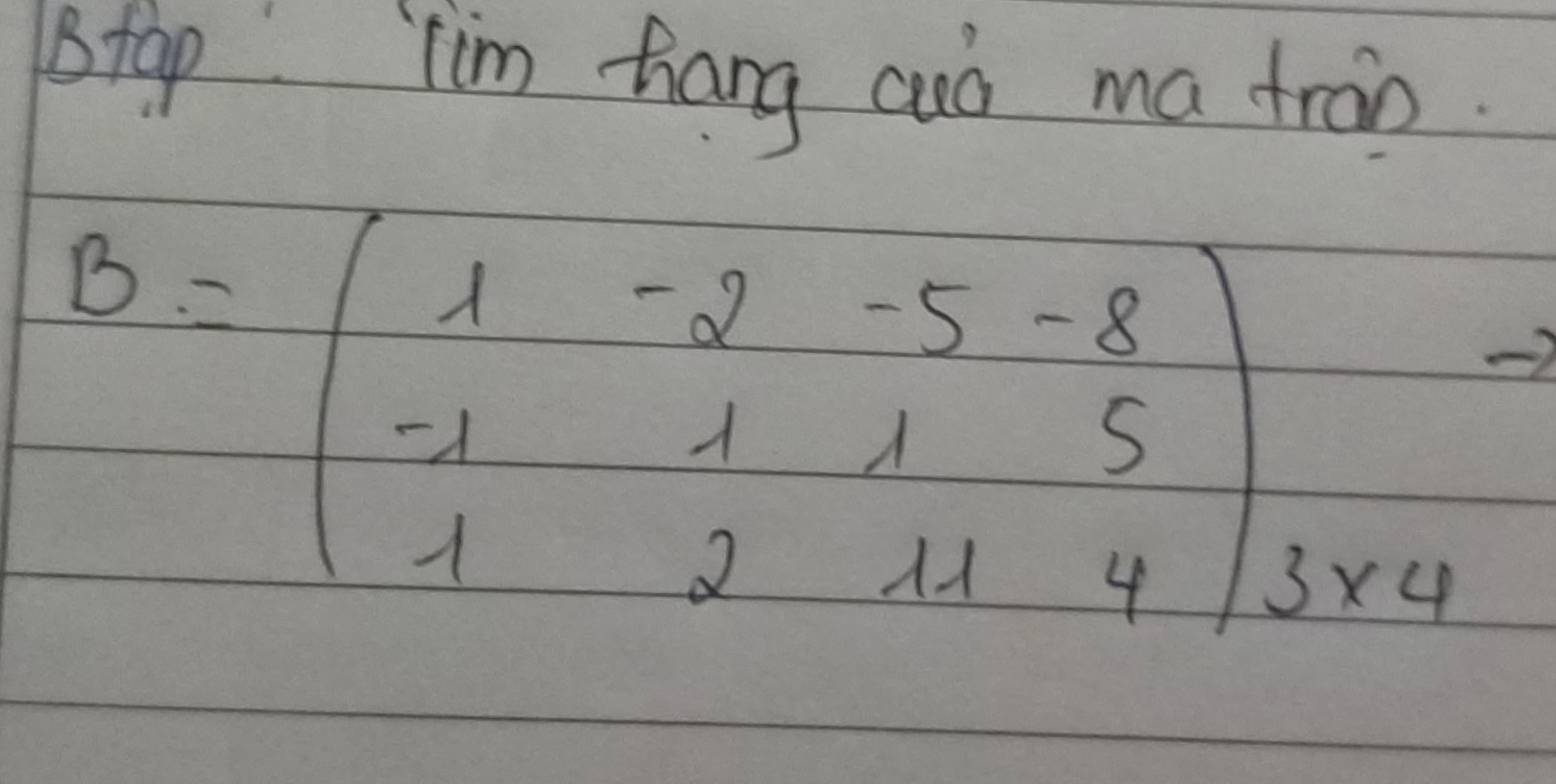 B tập: Tìm hạng của ma trận.
B = ( 1 -2 -5 -8 ) →
-1 1 1 5
1 2 11 4 ) 3×4